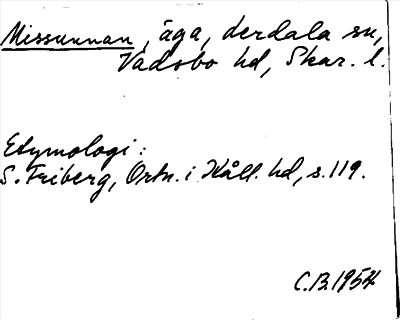 Missunnan, äga, Derdala sn,
Vadsbo hd, Skar. l.
Etymologi:
S. Friberg, Ortn. i Kåll. hd, s. 119.
C.B. 1954